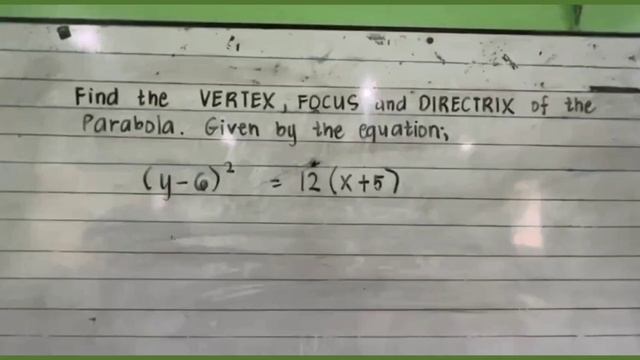 Find the VERTEX, FOCUS and DIRECTRIX of the
Parabola. Given by the equation;
(y-6)² = 12(x+5)